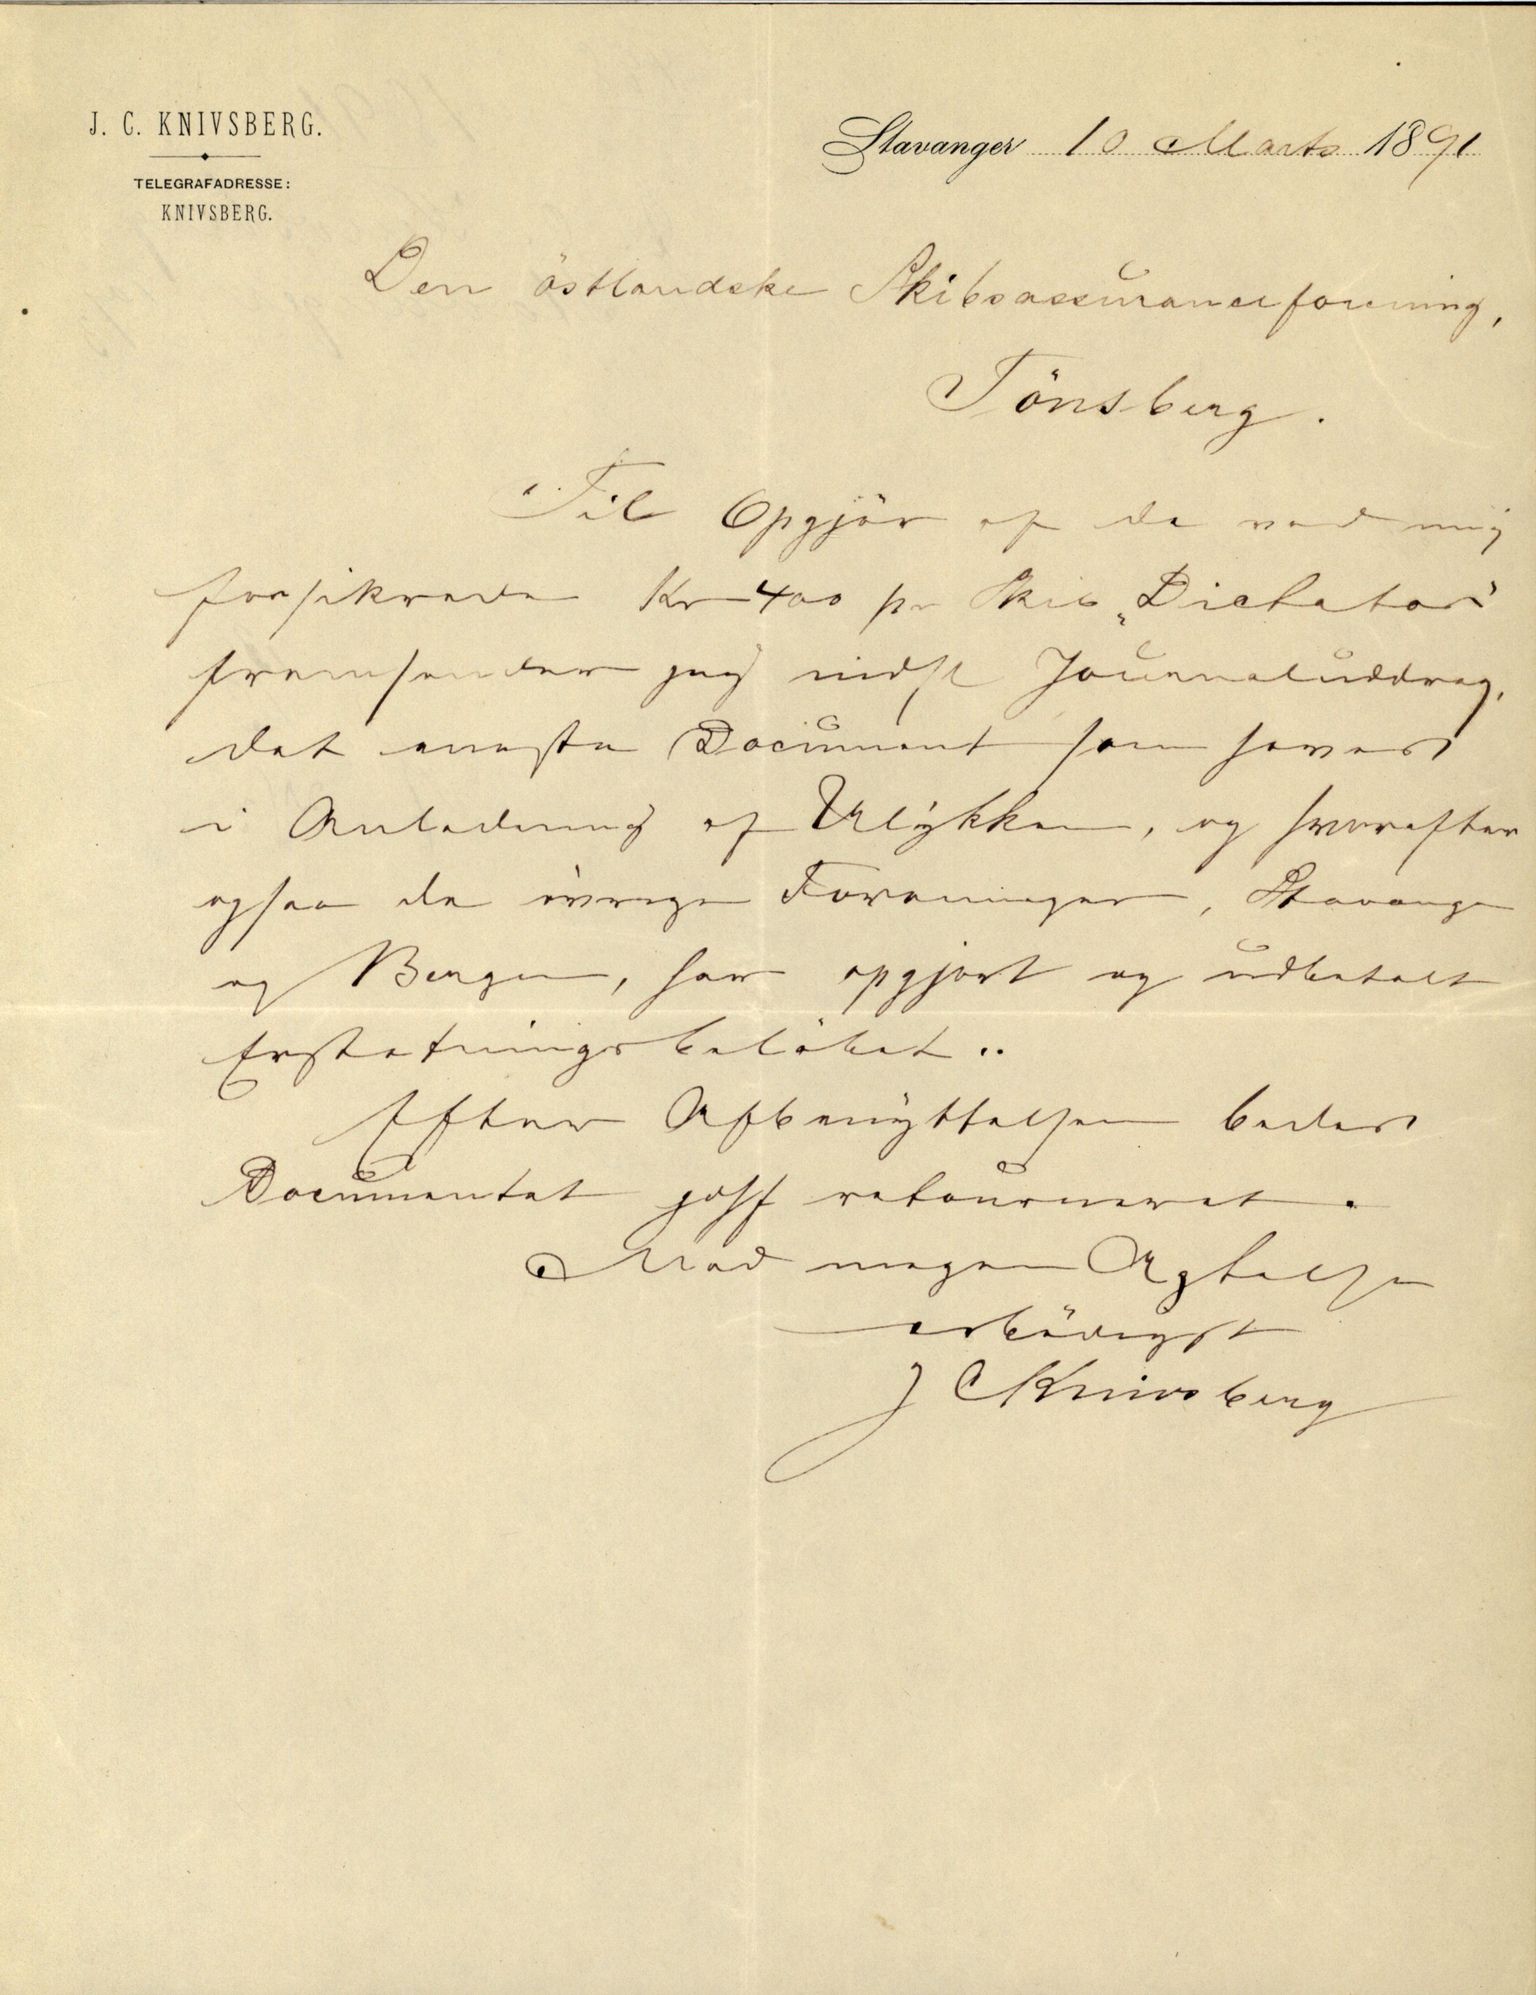 J. C. KNIVSBERG.
TELEGRAFADRESSE:
KNIVSBERG.
Stavanger 10 Marts 1891
Den östlandske Skibsassuranceforening,
Tönsberg.
Til Opgjör af de ved mig
forsikrede Kr 400 pr Skib „Dictator"
fremsender jeg indsl Journaluddrag,
det eneste Document som haves
i Anledning af Ulykken, og hvorefter
ogsaa de övrige Foreninger, Stavanger
og Bergen, har opgjort og udbetalt
Erstatningsbelöbet..
Efter Afbenyttelsen bedes
Documentet retourneret.
Med megen Agtelse
erbödigst
J C Knivsberg